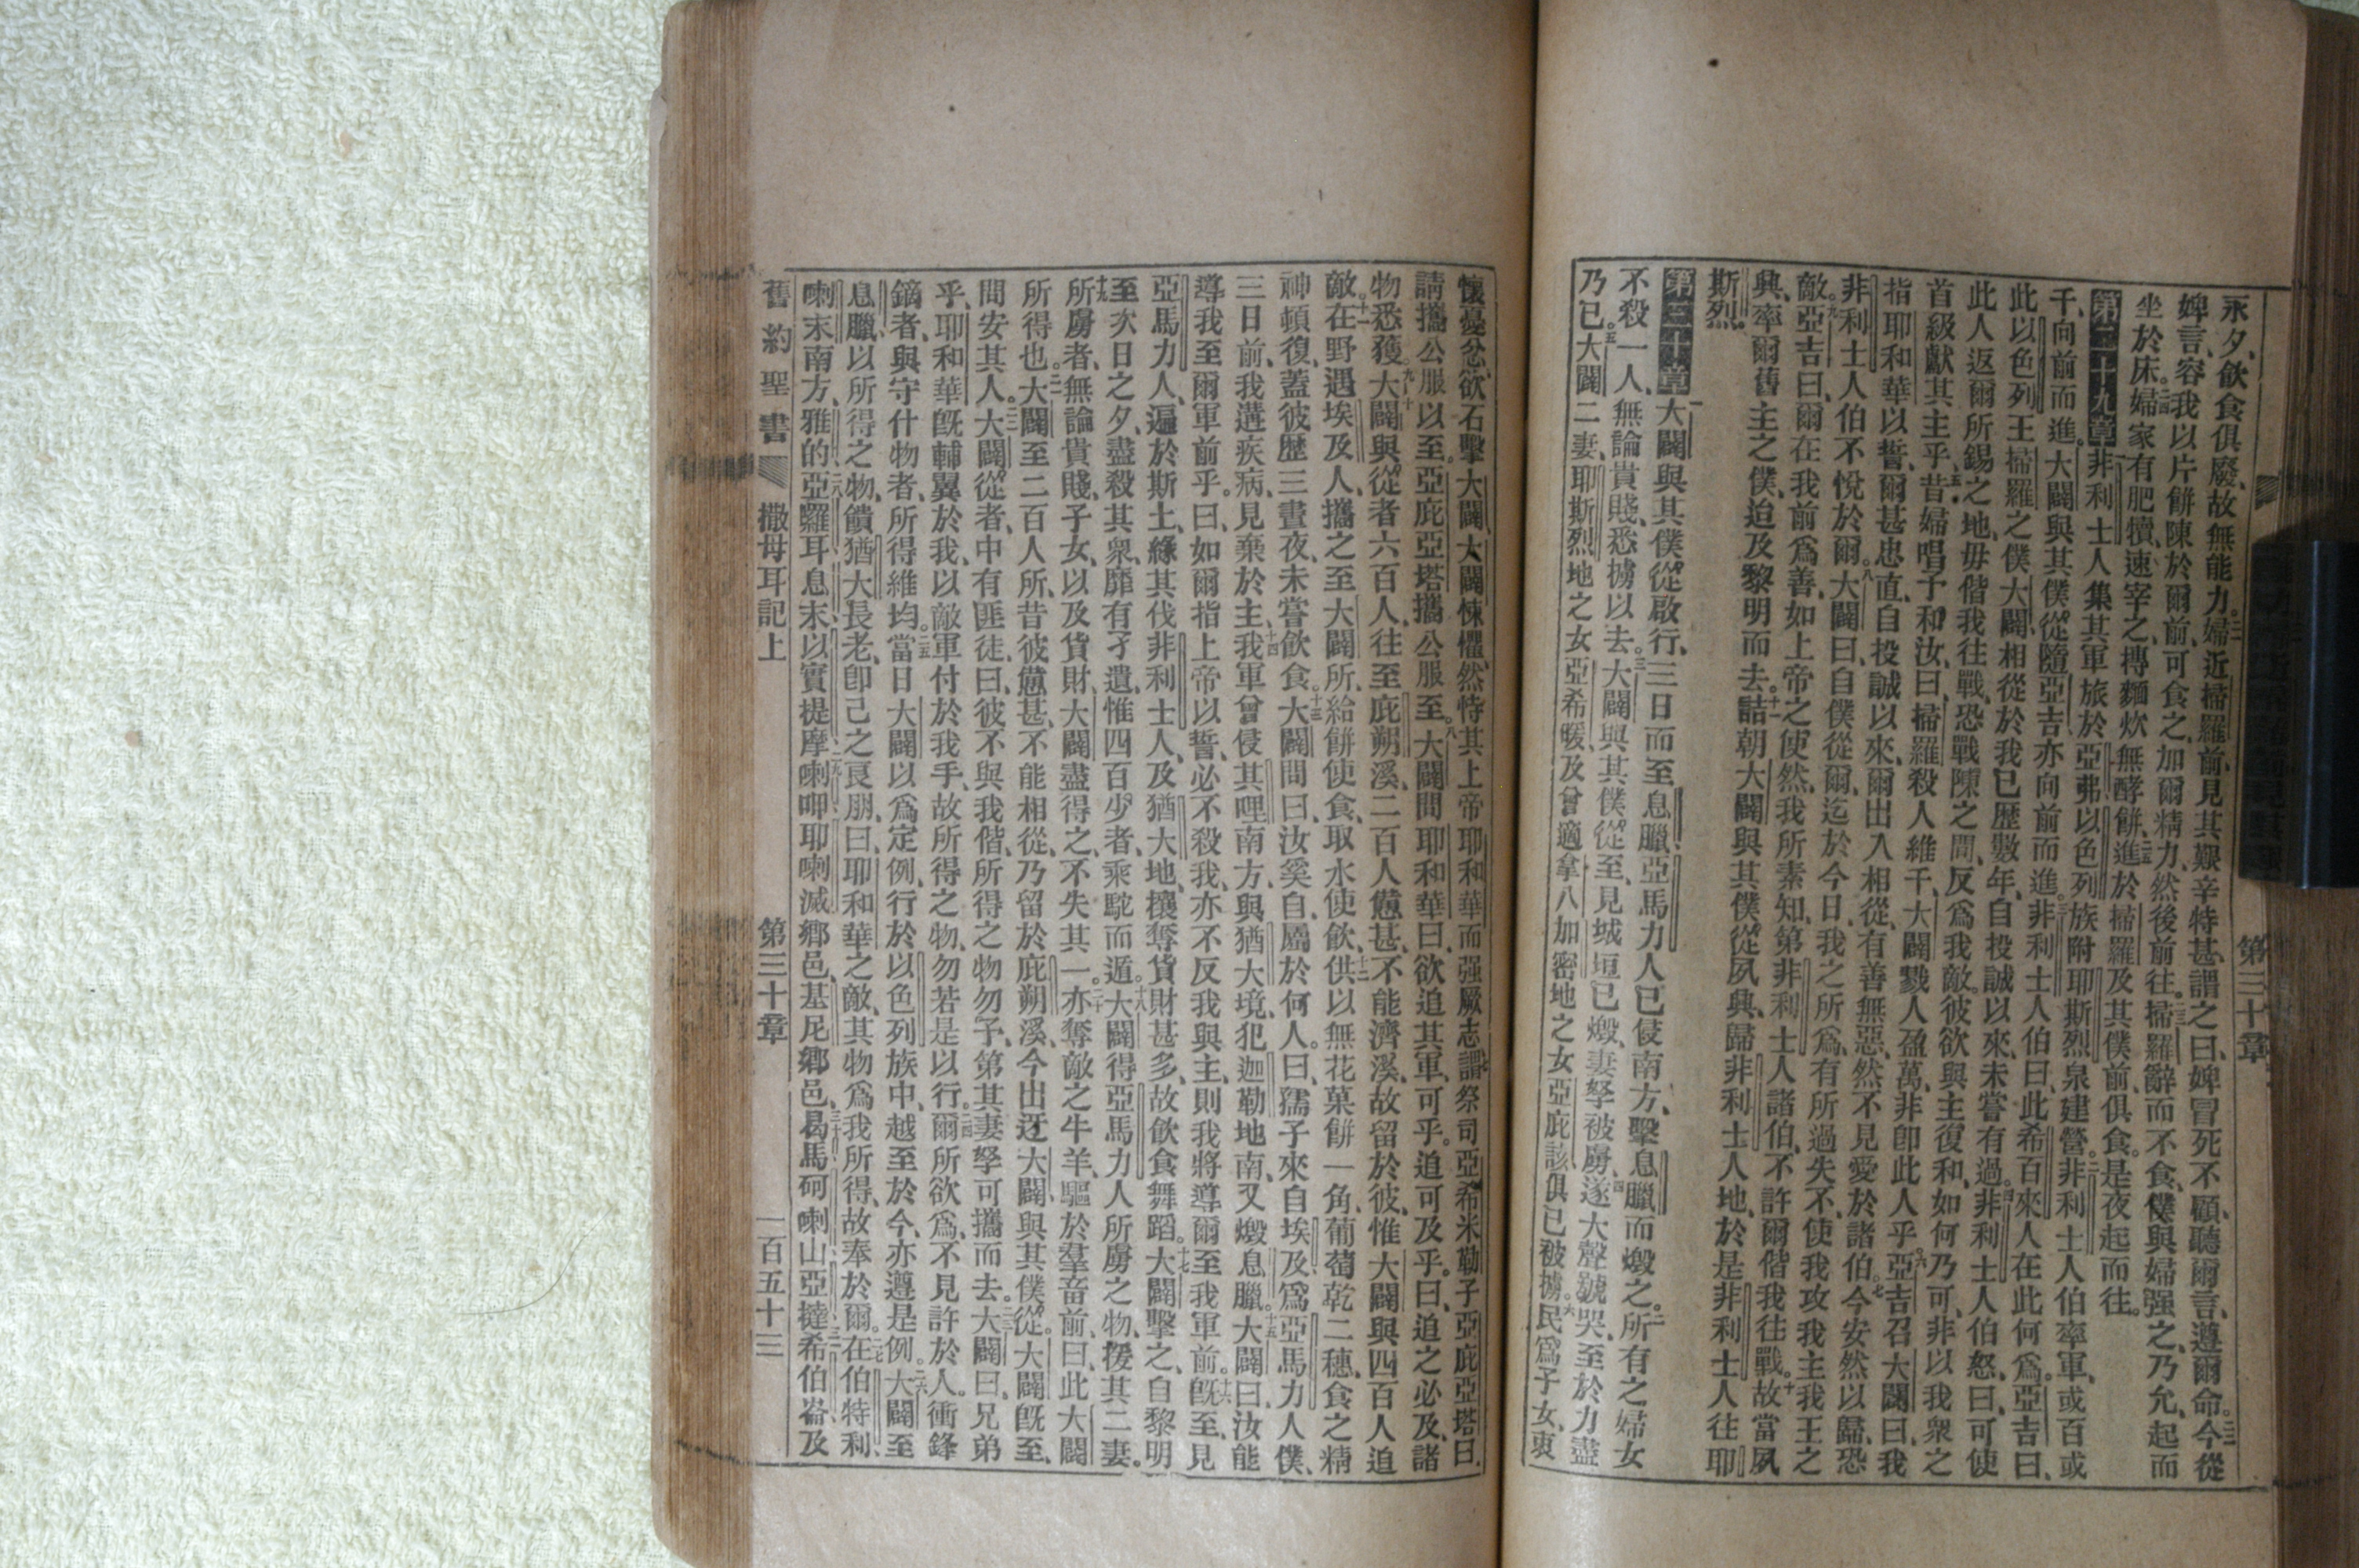 永夕飲食俱廢、故無能力。婦近掃羅前、見其艱辛特甚、謂之曰、婢冒死不顧、聽爾言、遵爾命。今從
婢言、容我以片餅陳於爾前、可食之、加爾精力、然後前往。掃羅辭而不食、僕與婦强之、乃允、起而
坐於床。婦家有肥犢、速宰之、摶麵炊無酵餅、進於掃羅及其僕前、俱食。是夜起而往。
第二十九章 非利士人集其軍旅於亞弗、以色列族附耶斯烈泉建營。非利士人伯率軍、或百或
千、向前而進。大闢與其僕從隨亞吉亦向前而進。非利士人伯曰、此希百來人在此何爲。亞吉曰、
此以色列王掃羅之僕大闢、相從於我、已歷數年、自投誠以來、未嘗有過。非利士人伯怒、曰、可使
此人返爾所錫之地、毋偕我往戰、恐戰陳之間、反爲我敵、彼欲與主復和、如何乃可、非以我衆之
首級獻其主乎。昔婦唱予和汝、曰、掃羅殺人維千、大闢戮人盈萬、非卽此人乎。亞吉召大闢曰、我
指耶和華以誓、爾甚忠直、自投誠以來、爾出入相從、有善無惡、然不見愛於諸伯、今安然以歸、恐
非利士人伯不悅於爾。大闢曰、自僕從爾、迄於今日、我之所爲、有所過失、不使我攻我主我王之
敵。亞吉曰、爾在我前爲善、如上帝之使然、我所素知、第非利士人諸伯、不許爾偕我往戰。故當夙
興、率爾舊主之僕、迨及黎明而去。詰朝大闢與其僕從夙興、歸非利士人地、於是非利士人往耶
斯烈。
第三十章 大闢與其僕從啟行、三日而至息臘、亞馬力人已侵南方、擊息臘而燬之。所有之婦女
不殺一人、無論貴賤、悉擄以去。大闢與其僕從至、見城垣已燬、妻孥被虜、遂大聲號哭、至於力盡
乃已。大闢二妻、耶斯烈地之女亞希暖、及曾適拿八加密地之女亞庇該、俱已被擄。民爲子女、衷
懷憂忿、欲石擊大闢、大闢悚懼、然恃其上帝耶和華而强厥志、謂祭司亞希米勒子亞庇亞塔曰、
請攜公服以至、亞庇亞塔攜公服至。大闢問耶和華曰、欲追其軍、可乎。追可及乎。曰、追之必及、諸
物悉獲。大闢與從者六百人、往至庇朔溪、二百人憊甚、不能濟溪、故留於彼、惟大闢與四百人追
敵。在野遇埃及人、攜之至大闢所、給餅使食、取水使飲、供以無花菓餅一角、葡萄乾二穗、食之精
神頓復、蓋彼歷三晝夜、未嘗飲食。大闢問曰、汝奚自、屬於何人。曰、孺子來自埃及、爲亞馬力人僕、
三日前、我遘疾病、見棄於主、我軍曾侵其哩南方、與猶大境、犯迦勒地南、又燬息臘。大闢曰、汝能
導我至爾軍前乎。曰、如爾指上帝以誓、必不殺我、亦不反我與主、則我將導爾至我軍前。旣至、見
亞馬力人、遍於斯土、緣其伐非利士人、及猶大地、攘奪貨財甚多、故飲食舞蹈。大闢擊之、自黎明
至次日之夕、盡殺其衆、靡有孑遺、惟四百少者、乘駝而遁。大闢得亞馬力人所虜之物、援其二妻。
所虜者、無論貴賤、子女、以及貨財、大闢盡得之、不失其一、亦奪敵之牛羊、驅於羣畜前、曰、此大闢
所得也。大闢至二百人所、昔彼憊甚、不能相從、乃留於庇朔溪、今出迓大闢、與其僕從。大闢旣至、
問安其人。大闢從者、中有匪徒、曰、彼不與我偕、所得之物勿予、第其妻孥可攜而去。大闢曰、兄弟
乎、耶和華旣輔翼於我、以敵軍付於我手、故所得之物、勿若是以行。爾所欲爲、不見許於人。衝鋒
鏑者、與守什物者、所得維均。當日大闢以爲定例、行於以色列族中、越至於今、亦遵是例。大闢至
息臘、以所得之物、饋猶大長老、卽己之良朋、曰、耶和華之敵、其物爲我所得、故奉於爾。在伯特利、
喇末南方、雅的、亞羅耳、息末、以實提摩、喇呷、耶喇滅郷邑、基尼郷邑、曷馬、砢喇山、亞撻、希伯崙、及
舊約聖書 撒母耳記上 第三十章 一百五十三